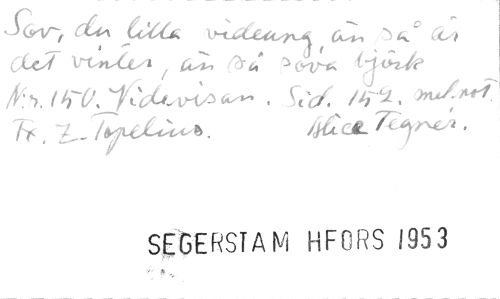 Sov, du lilla videung, än så är
det vinter, än så sova björk
N:r. 150. Videvisan. Sid. 152. mel. not.
Fx. Z. Topelius. Alice Tegnér.
SEGERSTAM HFORS 1953